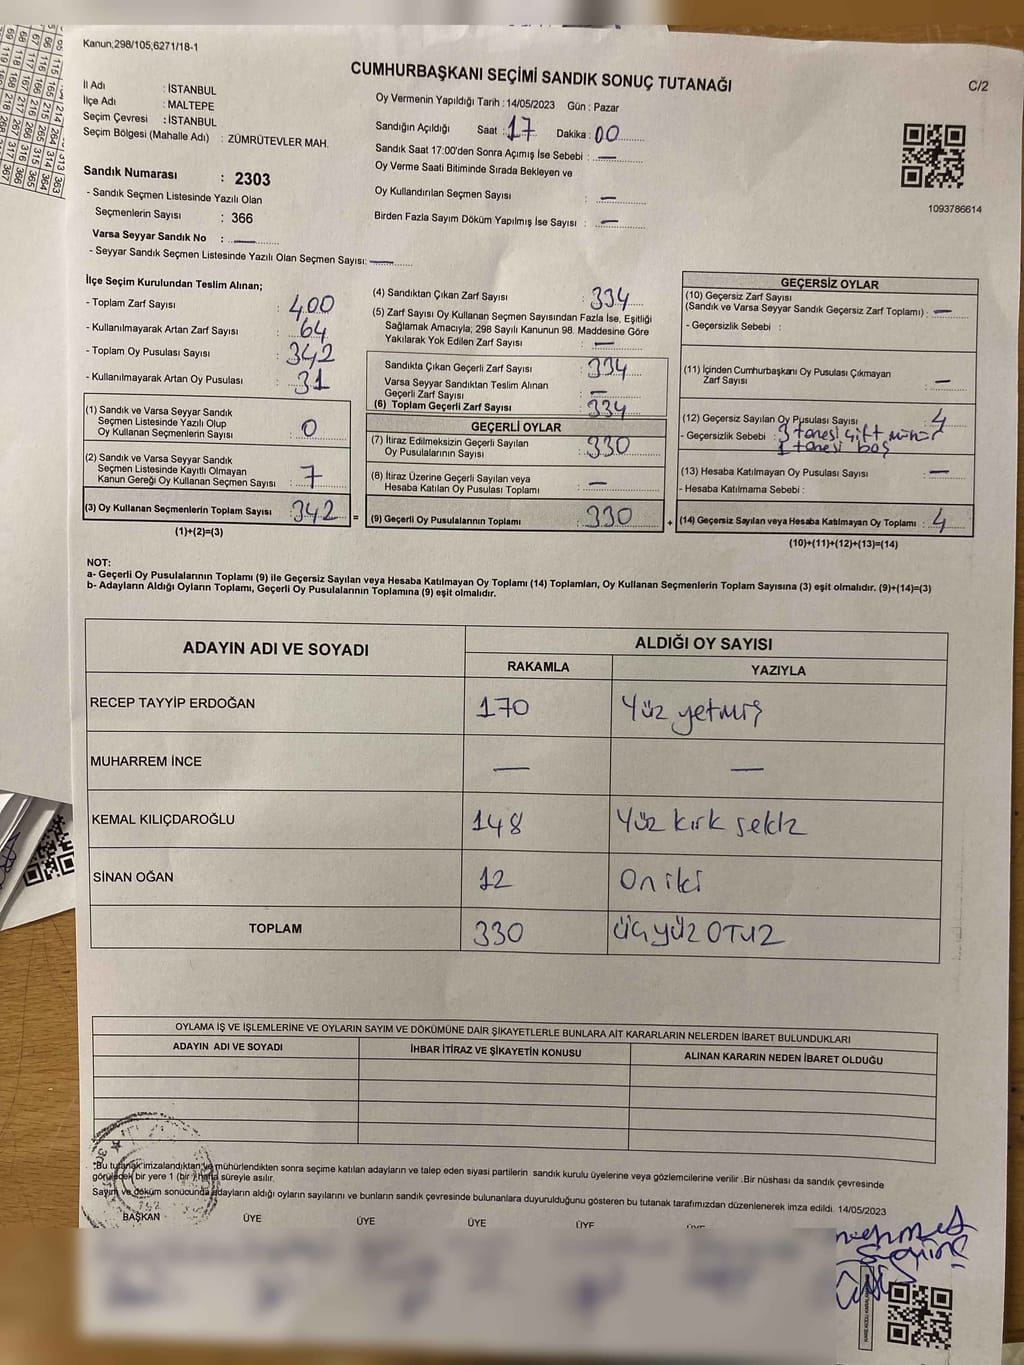 Kanun;298/105;6271/18-1
CUMHURBAŞKANI SEÇİMİ SANDIK SONUÇ TUTANAĞI
C/2
İl Adı : İSTANBUL
İlçe Adı : MALTEPE
Seçim Çevresi : İSTANBUL
Seçim Bölgesi (Mahalle Adı) : ZÜMRÜTEVLER MAH.
Sandık Numarası : 2303
- Sandık Seçmen Listesinde Yazılı Olan
Seçmenlerin Sayısı : 366
Varsa Seyyar Sandık No : —
- Seyyar Sandık Seçmen Listesinde Yazılı Olan Seçmen Sayısı: —
Oy Vermenin Yapıldığı Tarih : 14/05/2023 Gün : Pazar
Sandığın Açıldığı Saat : 17 Dakika : 00
Sandık Saat 17:00'den Sonra Açımış İse Sebebi : —
Oy Verme Saati Bitiminde Sırada Bekleyen ve
Oy Kullandırılan Seçmen Sayısı : —
Birden Fazla Sayım Döküm Yapılmış İse Sayısı : —
1093786614
İlçe Seçim Kurulundan Teslim Alınan;
- Toplam Zarf Sayısı : 400
- Kullanılmayarak Artan Zarf Sayısı : 64
- Toplam Oy Pusulası Sayısı : 342
- Kullanılmayarak Artan Oy Pusulası : 31
(1) Sandık ve Varsa Seyyar Sandık
Seçmen Listesinde Yazılı Olup
Oy Kullanan Seçmenlerin Sayısı : 0
(2) Sandık ve Varsa Seyyar Sandık
Seçmen Listesinde Kayıtlı Olmayan
Kanun Gereği Oy Kullanan Seçmen Sayısı : 7
(3) Oy Kullanan Seçmenlerin Toplam Sayısı : 342
(1)+(2)=(3)
(4) Sandıktan Çıkan Zarf Sayısı : 334
(5) Zarf Sayısı Oy Kullanan Seçmen Sayısından Fazla İse, Eşitliği
Sağlamak Amacıyla; 298 Sayılı Kanunun 98. Maddesine Göre
Yakılarak Yok Edilen Zarf Sayısı : —
Sandıkta Çıkan Geçerli Zarf Sayısı : 334
Varsa Seyyar Sandıktan Teslim Alınan
Geçerli Zarf Sayısı : —
(6) Toplam Geçerli Zarf Sayısı : 334
GEÇERLİ OYLAR
(7) İtiraz Edilmeksizin Geçerli Sayılan
Oy Pusulalarının Sayısı : 330
(8) İtiraz Üzerine Geçerli Sayılan veya
Hesaba Katılan Oy Pusulası Toplamı : —
= (9) Geçerli Oy Pusulalarının Toplamı : 330
GEÇERSİZ OYLAR
(10) Geçersiz Zarf Sayısı
(Sandık ve Varsa Seyyar Sandık Geçersiz Zarf Toplamı) : —
- Geçersizlik Sebebi :
(11) İçinden Cumhurbaşkanı Oy Pusulası Çıkmayan
Zarf Sayısı : —
(12) Geçersiz Sayılan Oy Pusulası Sayısı : 4
- Geçersizlik Sebebi : 3 tanesi çift mühür
1 tanesi boş
(13) Hesaba Katılmayan Oy Pusulası Sayısı : —
- Hesaba Katılmama Sebebi :
+ (14) Geçersiz Sayılan veya Hesaba Katılmayan Oy Toplamı : 4
(10)+(11)+(12)+(13)=(14)
NOT:
a- Geçerli Oy Pusulalarının Toplamı (9) ile Geçersiz Sayılan veya Hesaba Katılmayan Oy Toplamı (14) Toplamları, Oy Kullanan Seçmenlerin Toplam Sayısına (3) eşit olmalıdır. (9)+(14)=(3)
b- Adayların Aldığı Oyların Toplamı, Geçerli Oy Pusulalarının Toplamına (9) eşit olmalıdır.
ADAYIN ADI VE SOYADI ALDIĞI OY SAYISI
RAKAMLA YAZIYLA
RECEP TAYYİP ERDOĞAN 170 Yüz yetmiş
MUHARREM İNCE — —
KEMAL KILIÇDAROĞLU 148 Yüz kırk sekiz
SİNAN OĞAN 12 On iki
TOPLAM 330 üçyüz OTUZ
OYLAMA İŞ VE İŞLEMLERİNE VE OYLARIN SAYIM VE DÖKÜMÜNE DAİR ŞİKAYETLERLE BUNLARA AİT KARARLARIN NELERDEN İBARET BULUNDUKLARI
ADAYIN ADI VE SOYADI İHBAR İTİRAZ VE ŞİKAYETİN KONUSU ALINAN KARARIN NEDEN İBARET OLDUĞU
*Bu tutanak imzalandıktan ve mühürlendikten sonra seçime katılan adayların ve talep eden siyasi partilerin sandık kurulu üyelerine veya gözlemcilerine verilir .Bir nüshası da sandık çevresinde
görülecek bir yere 1 (bir ) hafta süreyle asılır.
Sayım ve döküm sonucunda adayların aldığı oyların sayılarını ve bunların sandık çevresinde bulunanlara duyurulduğunu gösteren bu tutanak tarafımızdan düzenlenerek imza edildi. 14/05/2023
BAŞKAN ÜYE ÜYE ÜYE ÜYE ÜYE